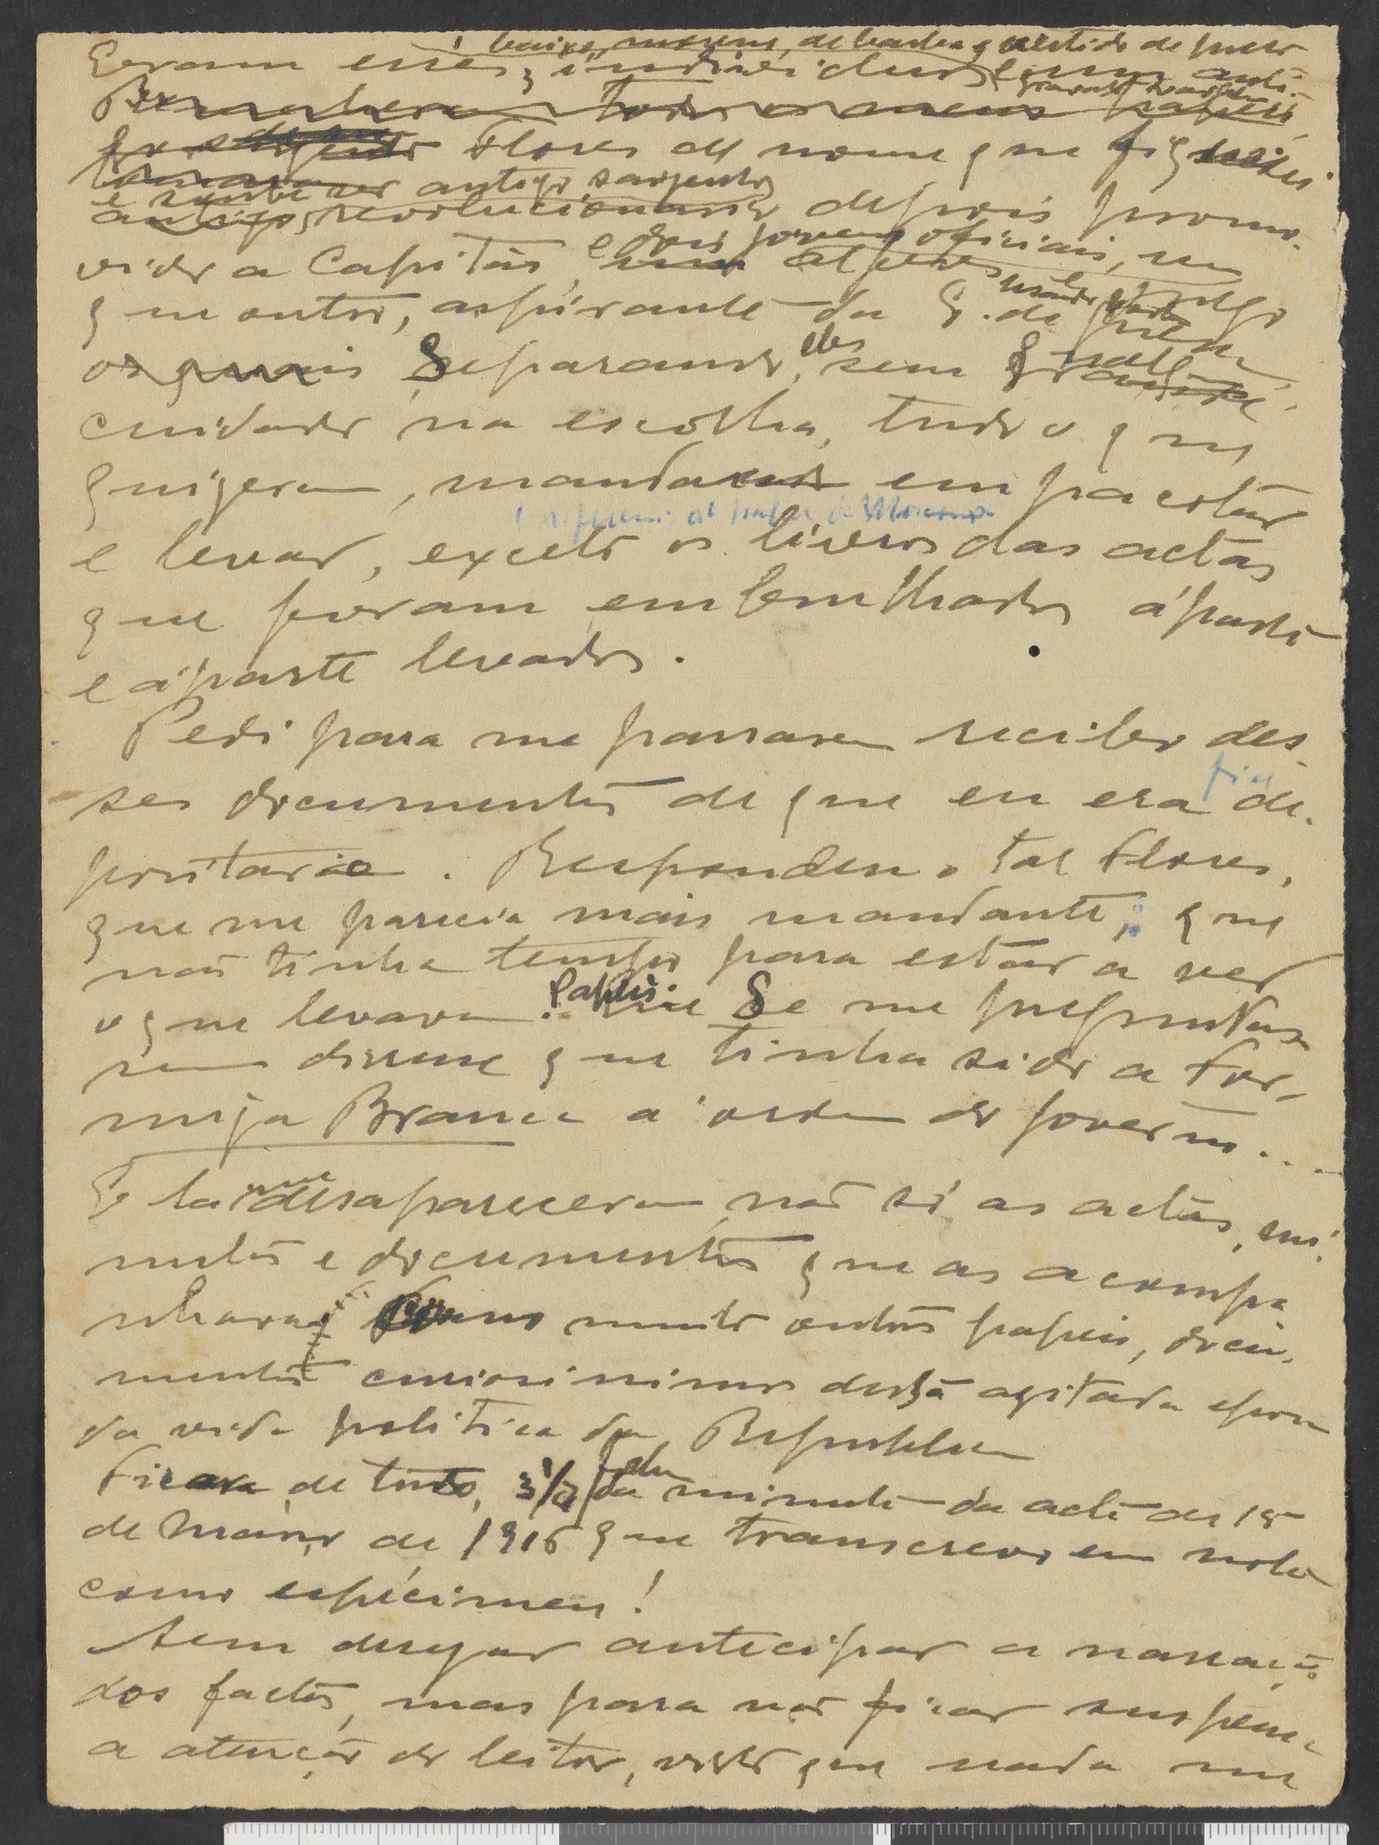 baixo, moreno, de barba e vestido de preto
Eram esses individuos um anti-
gravata
Remexeram todos os meus papeis,
Flores de nome que
e soube ser antigo sargento
antigo revolucionario depois promo-
vido a Capitão, e dois jovens oficiais, um
que outro, aspirante da G.
os quais Separando, eles sem
cuidado na escolha, tudo o que
quizeram, mandaram empacotar
e levar, exceto os livros das actas
que foram embrulhados áparte
e áparte levados.
Pedi para me passarem recibo des-
fiel
ses documentos de que eu era de-
positario. Respondeu o tal Flores,
que me parecia mais mandante, que
não tinha tempo para estar a ver
o que levava. Papeis. Se me preguntas-
sem dissesse que tinha sido a For-
miga Branca á ordem do governo...
E lá me desapareceram não só as actas, mi-
nutas e documentos que as acompa
nhavam como muitos outros papeis, docu-
mentos curiosissimos desta agitada epoca
da vida politica da Republica
Ficara de tudo, 3 1/2 folha da minuta da acta de 15
de Março de 1916 que transcrevo em nota
como espécimen!
Sem desejar antecipar a narração
dos factos, mas para não ficar suspensa
a atenção do leitor, visto que nada me